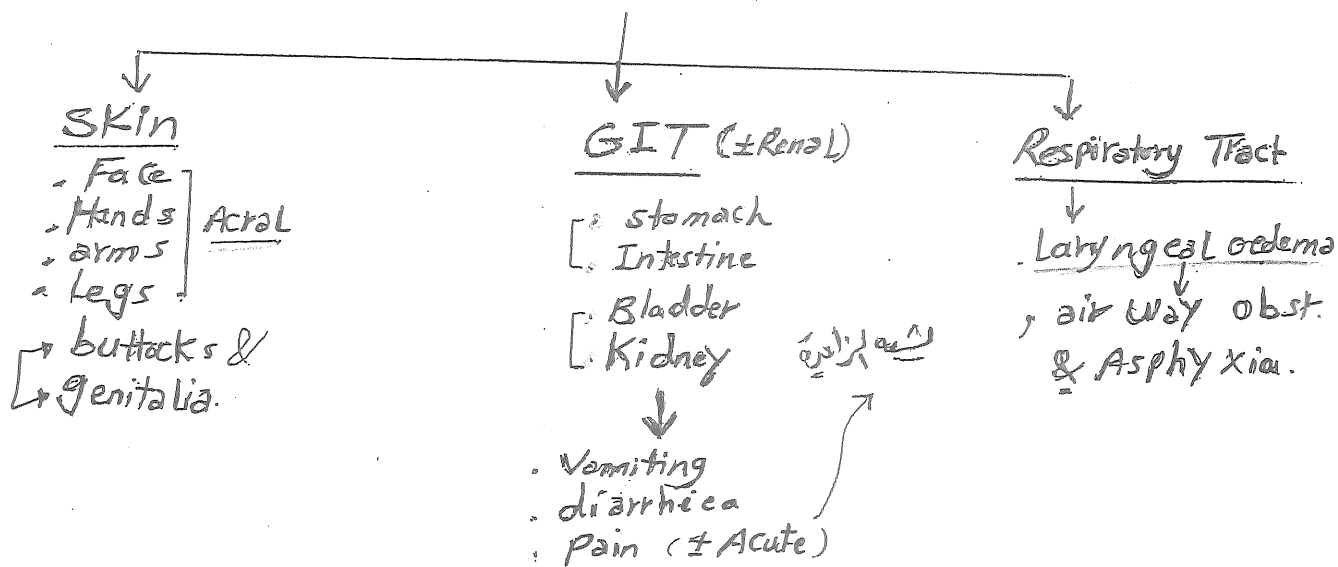 Skin
. Face
. Hands
. arms
. Legs
Acral
buttocks &
genitalia.
GIT (±Renal)
. stomach
. Intestine
. Bladder
. Kidney
. Vomiting
. diarrhiea
. Pain (± Acute)
Respiratory Tract
. Laryngeal oedema
, air way obst.
& Asphyxia.